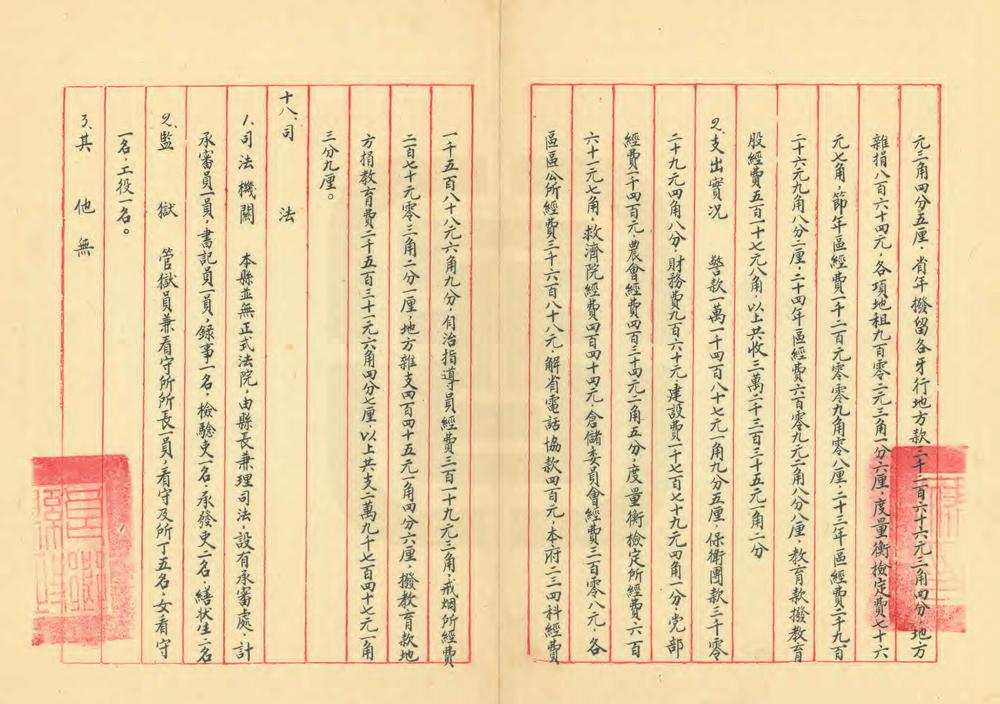 元三角四分五厘，省年撥留各牙行地方款三千二百六十六元三角四分，地方
雜捐八百六十四元，各項地租九百零二元三角一分六厘，度量衡檢定費七十六
元七角，節年區經費一千二百元零零九角零八厘，二十三年區經費二千九百
二十六元九角八分二厘，二十四年區經費六百零九元二角八分八厘，教育款撥教育
股經費五百一十七元八角，以上共收三萬二千三百三十五元一角二分
2.支出實況　警款一萬一千四百八十七元一角九分五厘，保衛團款三千零
二十九元四角八分，財務費九百六十元，建設費一千七百七十九元四角一分，党部
經費一千四百元，農會經費四百三十四元二角五分，度量衡檢定所經費六百
六十一元七角，救濟院經費四百四十四元，倉儲委員會經費三百零八元，各
區區公所經費三千六百八十八元，解省電話協款四百元，本府二三四科經費
一千五百八十八元六角九分，自治指導員經費三百一十九元三角，戒烟所經費
二百七十元零三角二分一厘，地方雜支四百四十五元一角四分六厘，撥教育款地
方捐教育費二千五百三十一元六角四分七厘，以上共支二萬九千七百四十七元一角
三分九厘。
十八、司法
1.司法機關　本縣並無正式法院，由縣長兼理司法，設有承審處，計
承審員一員，書記員一員，錄事一名，檢驗吏一名，承發吏二名，繕狀生二名
2.監獄　管獄員兼看守所所長一員，看守及所丁五名，女看守
一名，工役一名。
3.其他無